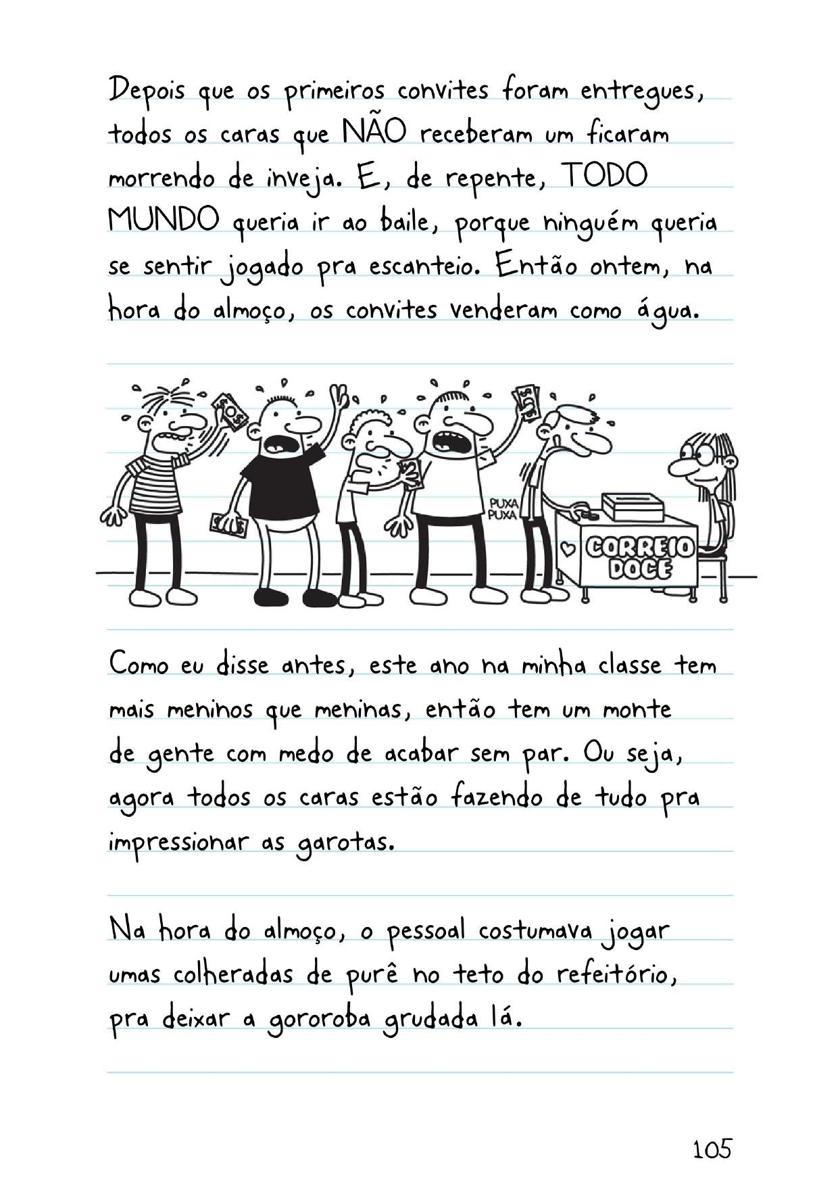 Depois que os primeiros convites foram entregues,
todos os caras que NÃO receberam um ficaram
morrendo de inveja. E, de repente, TODO
MUNDO queria ir ao baile, porque ninguém queria
se sentir jogado pra escanteio. Então ontem, na
hora do almoço, os convites venderam como água.
PUXA
PUXA
CORREIO
DOCE
Como eu disse antes, este ano na minha classe tem
mais meninos que meninas, então tem um monte
de gente com medo de acabar sem par. Ou seja,
agora todos os caras estão fazendo de tudo pra
impressionar as garotas.
Na hora do almoço, o pessoal costumava jogar
umas colheradas de purê no teto do refeitório,
pra deixar a gororoba grudada lá.
105